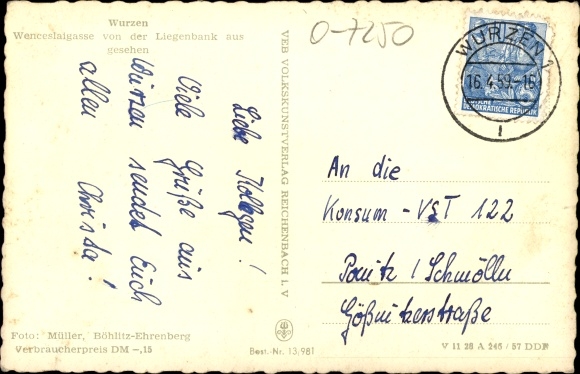 Wurzen
Wenceslaigasse von der Liegenbank aus
gesehen
O-7250
Liebe Kollegen!
Viele Grüße aus
Wurzen sendet Euch
allen Christa!
Foto: Müller, Böhlitz-Ehrenberg
Verbraucherpreis DM -,15
VEB VOLKSKUNSTVERLAG REICHENBACH i. V
Best.-Nr. 13,981
WURZEN 1
16.4.59.-16
DEUTSCHE
DEMOKRATISCHE REPUBLIK
An die
Konsum - VST 122
Ponitz / Schmölln
Gößnitzerstraße
V 11 28 A 245 / 57 DDR